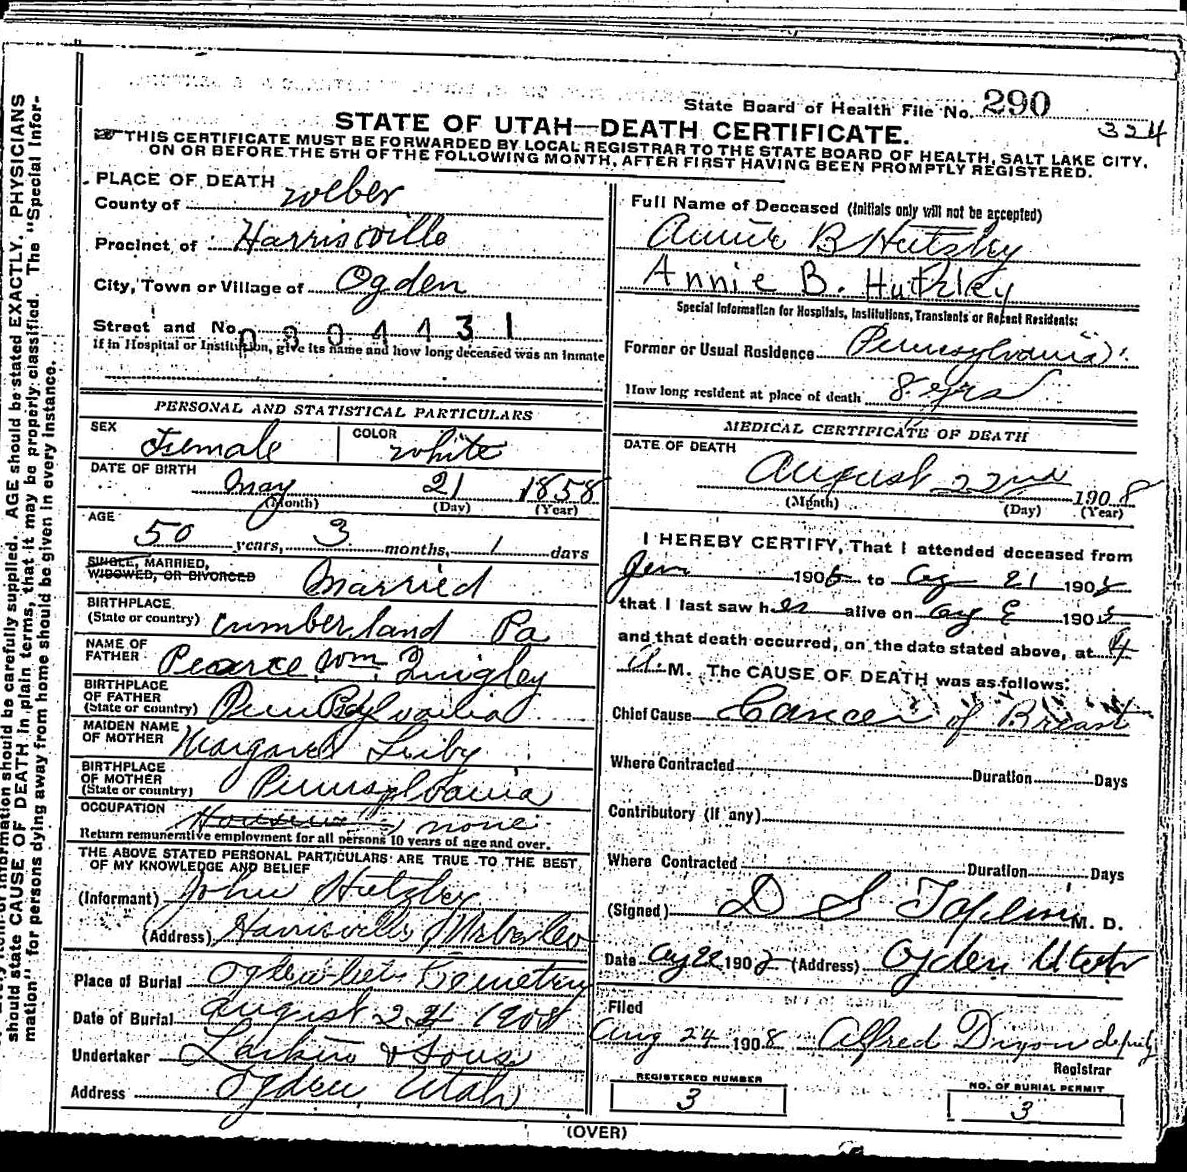 State Board of Health File No. 290
324
STATE OF UTAH—DEATH CERTIFICATE.
THIS CERTIFICATE MUST BE FORWARDED BY LOCAL REGISTRAR TO THE STATE BOARD OF HEALTH, SALT LAKE CITY,
ON OR BEFORE THE 5TH OF THE FOLLOWING MONTH, AFTER FIRST HAVING BEEN PROMPTLY REGISTERED.
PLACE OF DEATH
County of Weber
Precinct of Harrisville
City, Town or Village of Ogden
Street and No. 0304431
If in Hospital or Institution, give its name and how long deceased was an inmate
PERSONAL AND STATISTICAL PARTICULARS
SEX Female COLOR White
DATE OF BIRTH
May 21 1858
(Month) (Day) (Year)
AGE
50 years, 3 months, 1 days
SINGLE, MARRIED,
WIDOWED, OR DIVORCED Married
BIRTHPLACE
(State or country) Cumberland Pa
NAME OF
FATHER Pearce Wm. Quigley
BIRTHPLACE
OF FATHER
(State or country) Pennsylvania
MAIDEN NAME
OF MOTHER Margaret Leiby
BIRTHPLACE
OF MOTHER
(State or country) Pennsylvania
OCCUPATION
none
Return remunerative employment for all persons 10 years of age and over.
THE ABOVE STATED PERSONAL PARTICULARS ARE TRUE TO THE BEST
OF MY KNOWLEDGE AND BELIEF
(Informant) John Hutzley
(Address) Harrisville, Weber Co
Place of Burial Ogden City Cemetery
Date of Burial August 1908
Undertaker Larkin & Sons
Address Ogden Utah
Full Name of Deceased (Initials only will not be accepted)
Annie B Hutzley
Annie B. Hutzley
Special Information for Hospitals, Institutions, Transients or Recent Residents:
Former or Usual Residence Pennsylvania
How long resident at place of death 8 yrs
MEDICAL CERTIFICATE OF DEATH
DATE OF DEATH
August 22nd 1908
(Month) (Day) (Year)
I HEREBY CERTIFY, That I attended deceased from
190 to Aug 21 1908
that I last saw her alive on Aug 1908
and that death occurred, on the date stated above, at 4
a M. The CAUSE OF DEATH was as follows:
Chief Cause Cancer of Breast
Where Contracted Duration Days
Contributory (if any)
Where Contracted Duration Days
(Signed) D S M. D.
Date Aug 22 1908 (Address) Ogden Utah
Filed
Aug 24 1908 Alfred Dixon deputy
Registrar
REGISTERED NUMBER
3
NO. OF BURIAL PERMIT
3
(OVER)
information should be carefully supplied. AGE should be stated EXACTLY. PHYSICIANS
should state CAUSE OF DEATH in plain terms, that it may be properly classified. The "Special Infor-
mation" for persons dying away from home should be given in every instance.